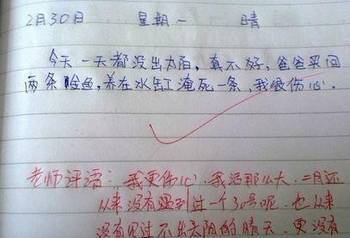 2月30日 星期一 晴
今天一天都没出太阳,真不好,爸爸买回
两条金鱼,养在水缸淹死一条,我很伤心。
老师评语:我更伤心,我活那么大,二月还
从来没有遇到过一个30号呢,也从来
没有见过不出太阳的晴天,更没有